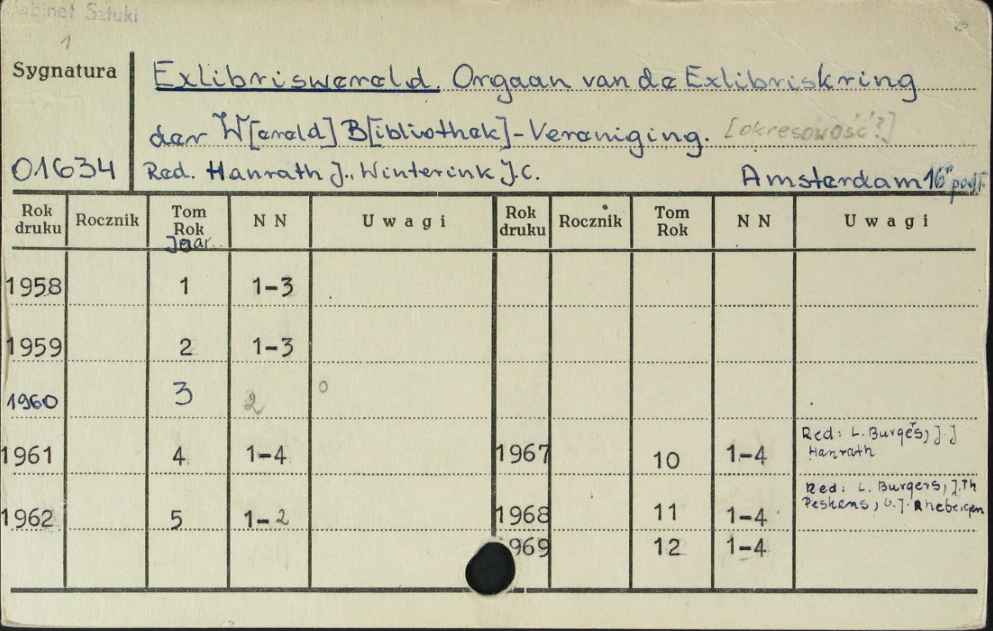 Gabinet Sztuki
1
Sygnatura
Exlibriswereld. Orgaan van de Exlibriskring
der W[ereld] B[ibliothek]-Vereniging. [okresowość?]
01634 Red. Hanrath J., Winterink J.C. Amsterdam 16°
Rok druku Rocznik Tom Rok Jaar. N N Uwagi Rok druku Rocznik Tom Rok N N Uwagi
1958 1 1-3
1959 2 1-3
1960 3 2 0
1961 4 1-4 1967 10 1-4 Red: L. Burgers, J.J
Hanrath
1962 5 1-2 1968 11 1-4 Red: L. Burgers, J.Th
Peskens, G.J.
1969 12 1-4